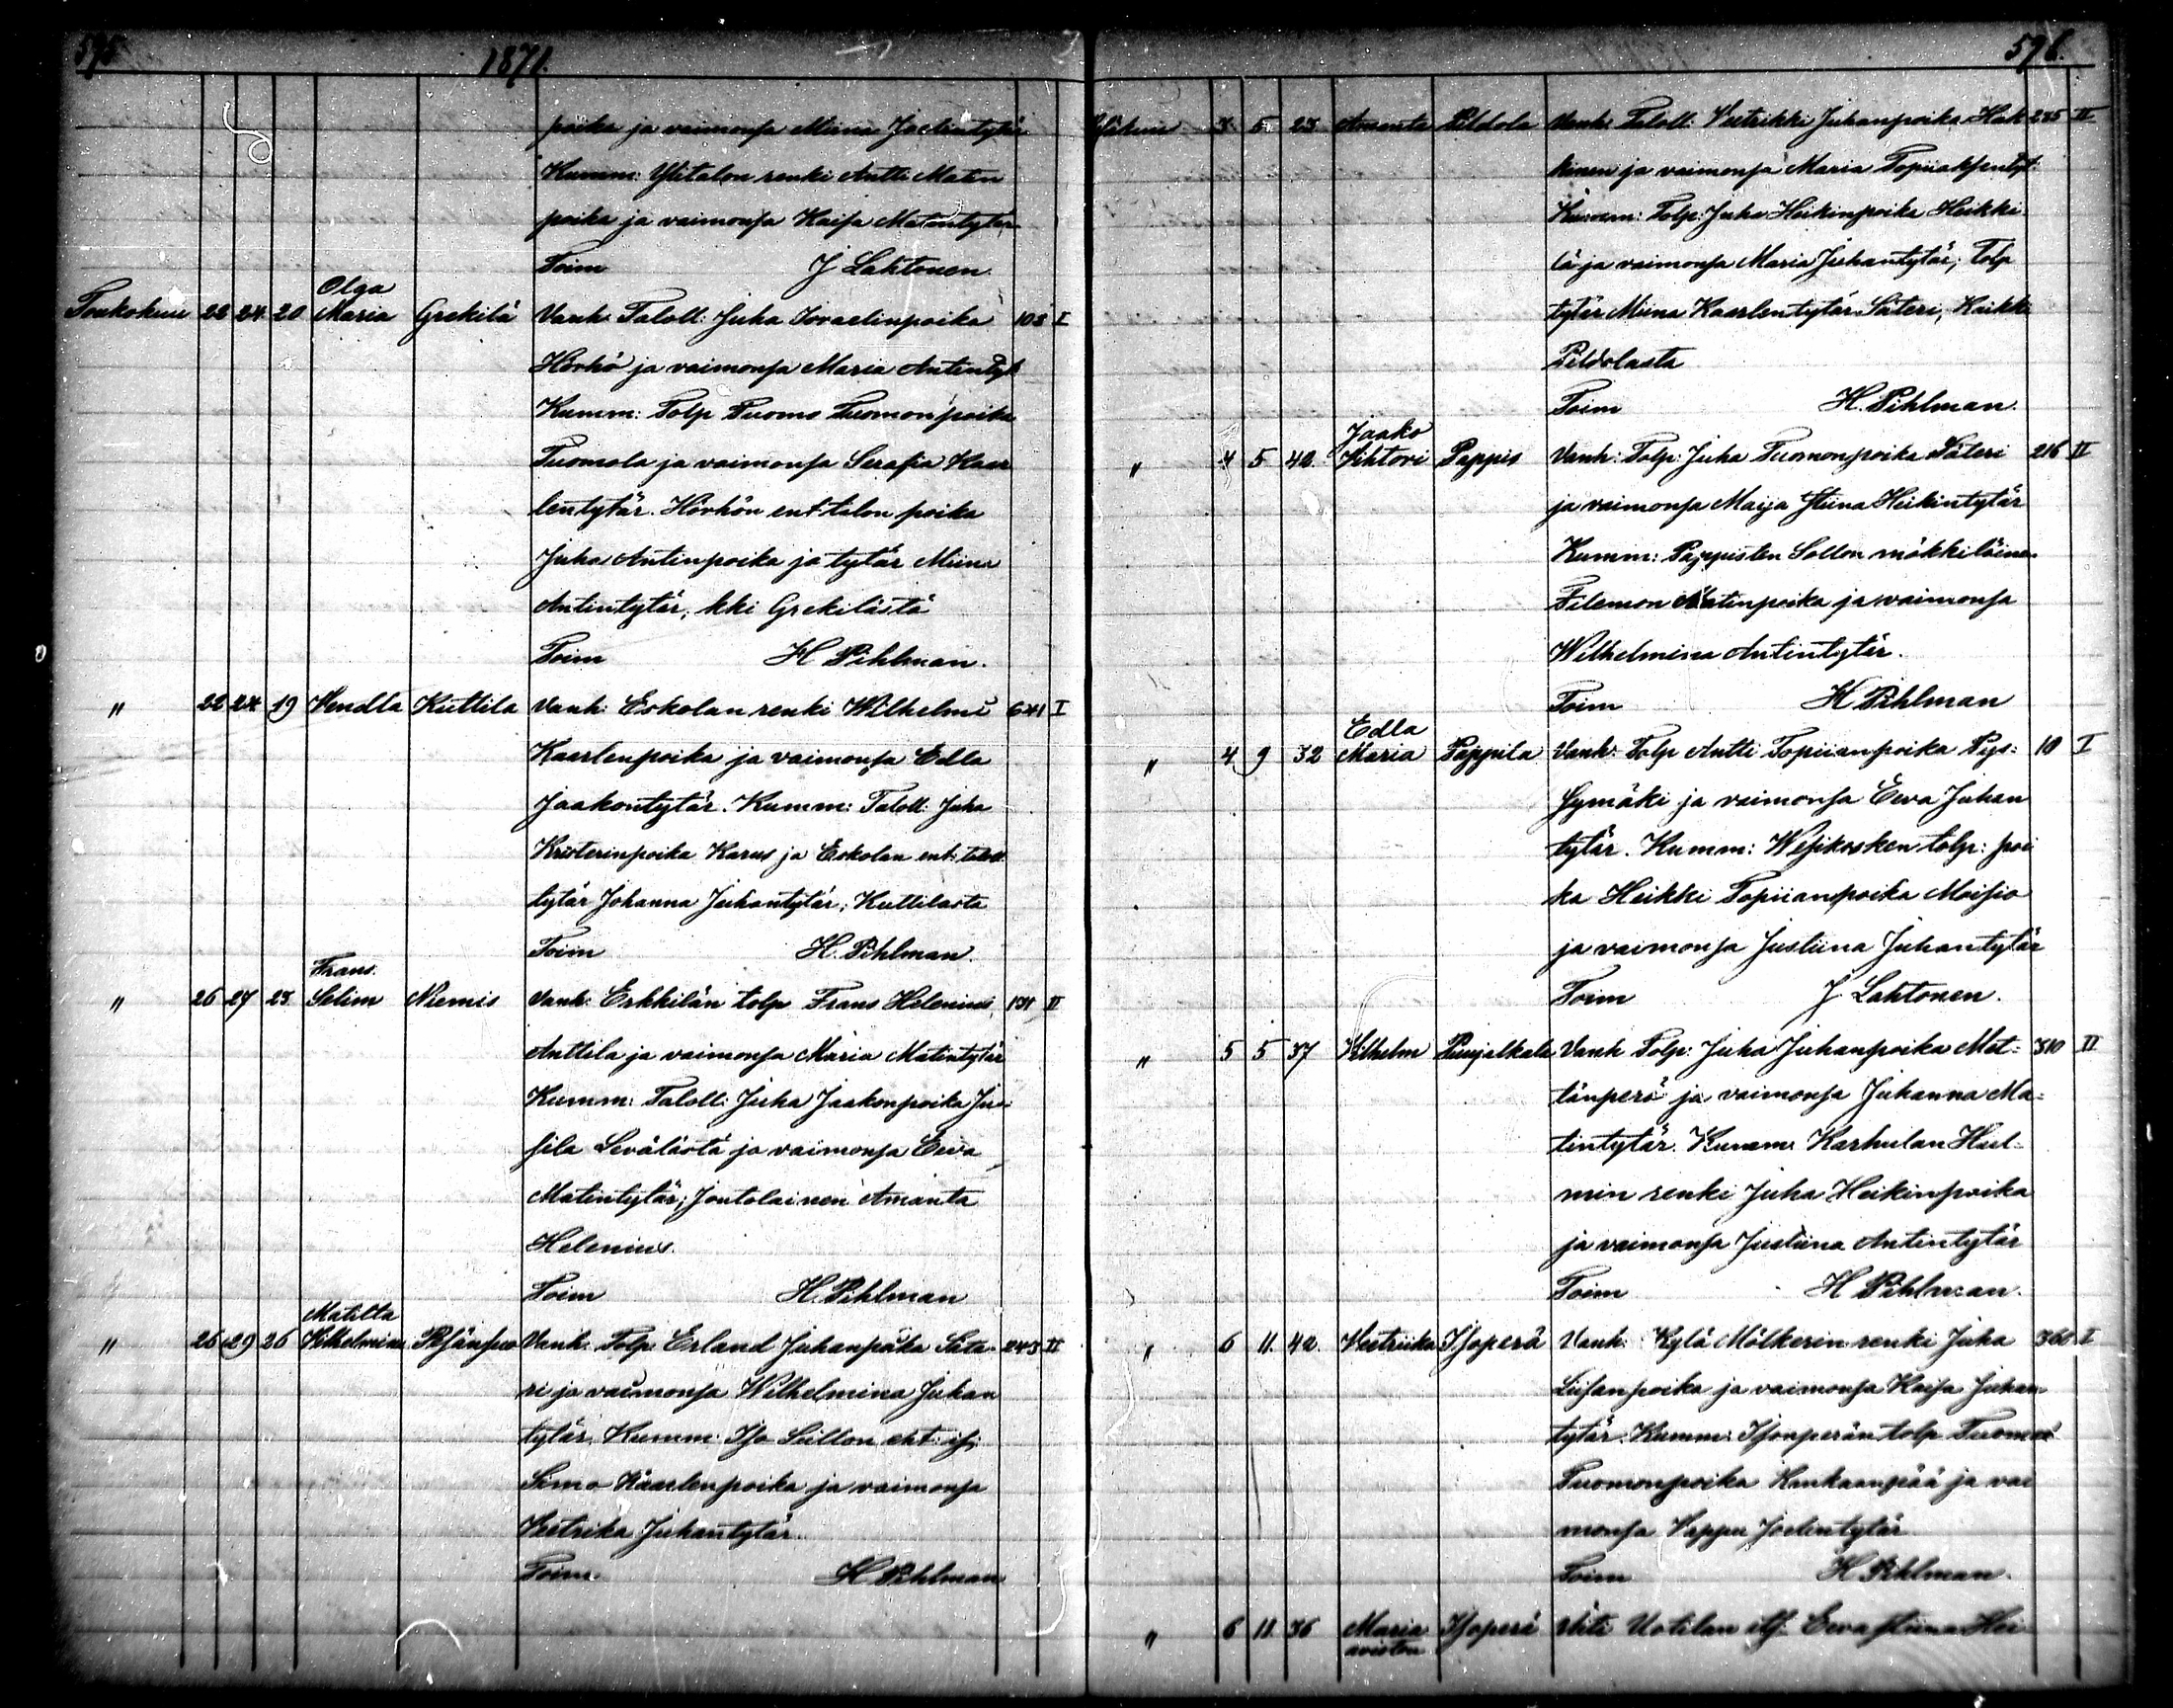 595
1871.
poika ja vaimonsa Miina Joelintytär
Kumm: Ylitalon renki Antti Matin
poika ja vaimonsa Kaisa Matintytär
Toim J Lahtonen
Toukokuu 22 24 20 Olga Maria Grekilä Vanh. Taloll: Juha Israelinpoika 103 I
Hörhö ja vaimonsa Maria Antintyt
Kumm: Tolp Tuomo Tuomonpoika
Tuomola ja vaimonsa Serafia Kaar
lentytär. Hörhön ent. talon poika
Juha Antinpoika ja tytär Miina
Antintytär, kki Grekilästä
Toim H Pihlman.
" 22 24 19 Wendla Kuttila Vanh: Eskolan renki Wilhelmi 641 I
Kaarlenpoika ja vaimonsa Edla
Jaakontytär. Kumm: Taloll: Juha
Kristerinpoika Karus ja Eskolan ent: taloll
tytär Johanna Juhantytär; Kuttilasta
Toim H. Pihlman.
" 26 27 23 Frans. Selim Niemis Vanh: Erkkilän tolp Frans Helenius, 131 II
Anttila ja vaimonsa Maria Matintytär
Kumm: Taloll: Juha Jaakonpoika Ju
sila Sevälästä ja vaimonsa Eeva
Matintytär; Joutolainen Amanta
Helenius.
Toim H. Pihlman
" 26 29 26 Matilta Wilhelmina Vanh. Tolp. Erland Juhanpoika Säte- 243 II
ri ja vaimonsa Wilhelmina Juhan
tytär. Kumm: Iso Seillon eht: isi
Simo Kaarlenpoika ja vaimonsa
Veetrika Juhantytär.
Toim. H Pihlman

596.
3 5 23 Amanta Pildola Vanh: Taloll: Veetrikki Juhanpoika Hak 235 II
kinen ja vaimonsa Maria Topiaksentyt.
Kumm: Tolp: Juha Heikinpoika Heikki
lä ja vaimonsa Maria Juhantytär; Tolp
tytär Miina Kaarlentytär Säteri, Kaikki
Pildolasta
Toim H. Pihlman.
" 4 5 42. Jaako Vihtori Pappis Vanh: Tolp: Juha Tuomonpoika Säteri 216 II
ja vaimonsa Maija Stiina Heikintytär
Kumm: Pappisten Sollon mökkiläinen
Filemon Matinpoika ja vaimonsa
Wilhelmina Antintytär.
Toim H Pihlman
" 4 9 32 Edla Maria Pappila Vanh: Tolp Antti Topiianpoika Pys- 10 I
symäki ja vaimonsa Eeva Juhan
tytär. Kumm: Wesikosken tolp: poi
ka Heikki Topiianpoika Moisio
ja vaimonsa Justiina Juhantytär
Toim J Lahtonen.
" 5 5 37 Wilhelm Puujalkala Vanh Tolp: Juha Juhanpoika Met- 310 II
tänperä ja vaimonsa Juhanna Ma-
tintytär. Kumm. Karhulan Huil-
min renki Juha Heikinpoika
ja vaimonsa Justiina Antintytär
Toim H Pihlman.
" 6 11. 42. Veetriika Isoperä Vanh: Kylä Mölkerin renki Juha 361 I
Liisanpoika ja vaimonsa Kaisa Juhan
tytär. Kumm: Isonperän tolp Tuomas
Tuomonpoika Kankaanpää ja vai
monsa Vappu Joelintytär
Toim H Pihlman.
" 6 11 36 Maria avioton Isoperä Äiti Uotilan itl. Eeva Stiina Hei